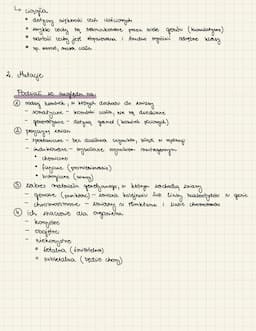 ↳ ciągła
• dotyczy większości cech ilościowych
• zwykle cechy są warunkowane przez wiele genów (kumulatywne)
• wartości cechy jest stopniowana i trudno wyróżnić odrębne klasy
• np. wzrost, masa ciała
2. Mutacje
Podział ze względu na:
① rodzaj komórek, w których dochodzi do zmiany
– somatyczne – komórki ciała, nie są dziedziczne
– generatywne – dotyczą gamet (komórek płciowych)
② przyczynę zmian
– spontaniczne – bez działania czynników, błędy w replikacji
– indukowane – wywołane czynnikiem mutagennym
• chemiczne
• fizyczne (promieniowanie)
• biologiczne (wirusy)
③ zakres materiału genetycznego, w którym zachodzą zmiany
– genowe (punktowe) – zmiana kolejności lub liczby nukleotydów w genie
– chromosomowe – zmiany w strukturze i liczbie chromosomów
④ ich znaczenie dla organizmu
– korzystne
– obojętne
– niekorzystne
• letalne (śmiertelne)
• subletalne (ciężkie choroby)